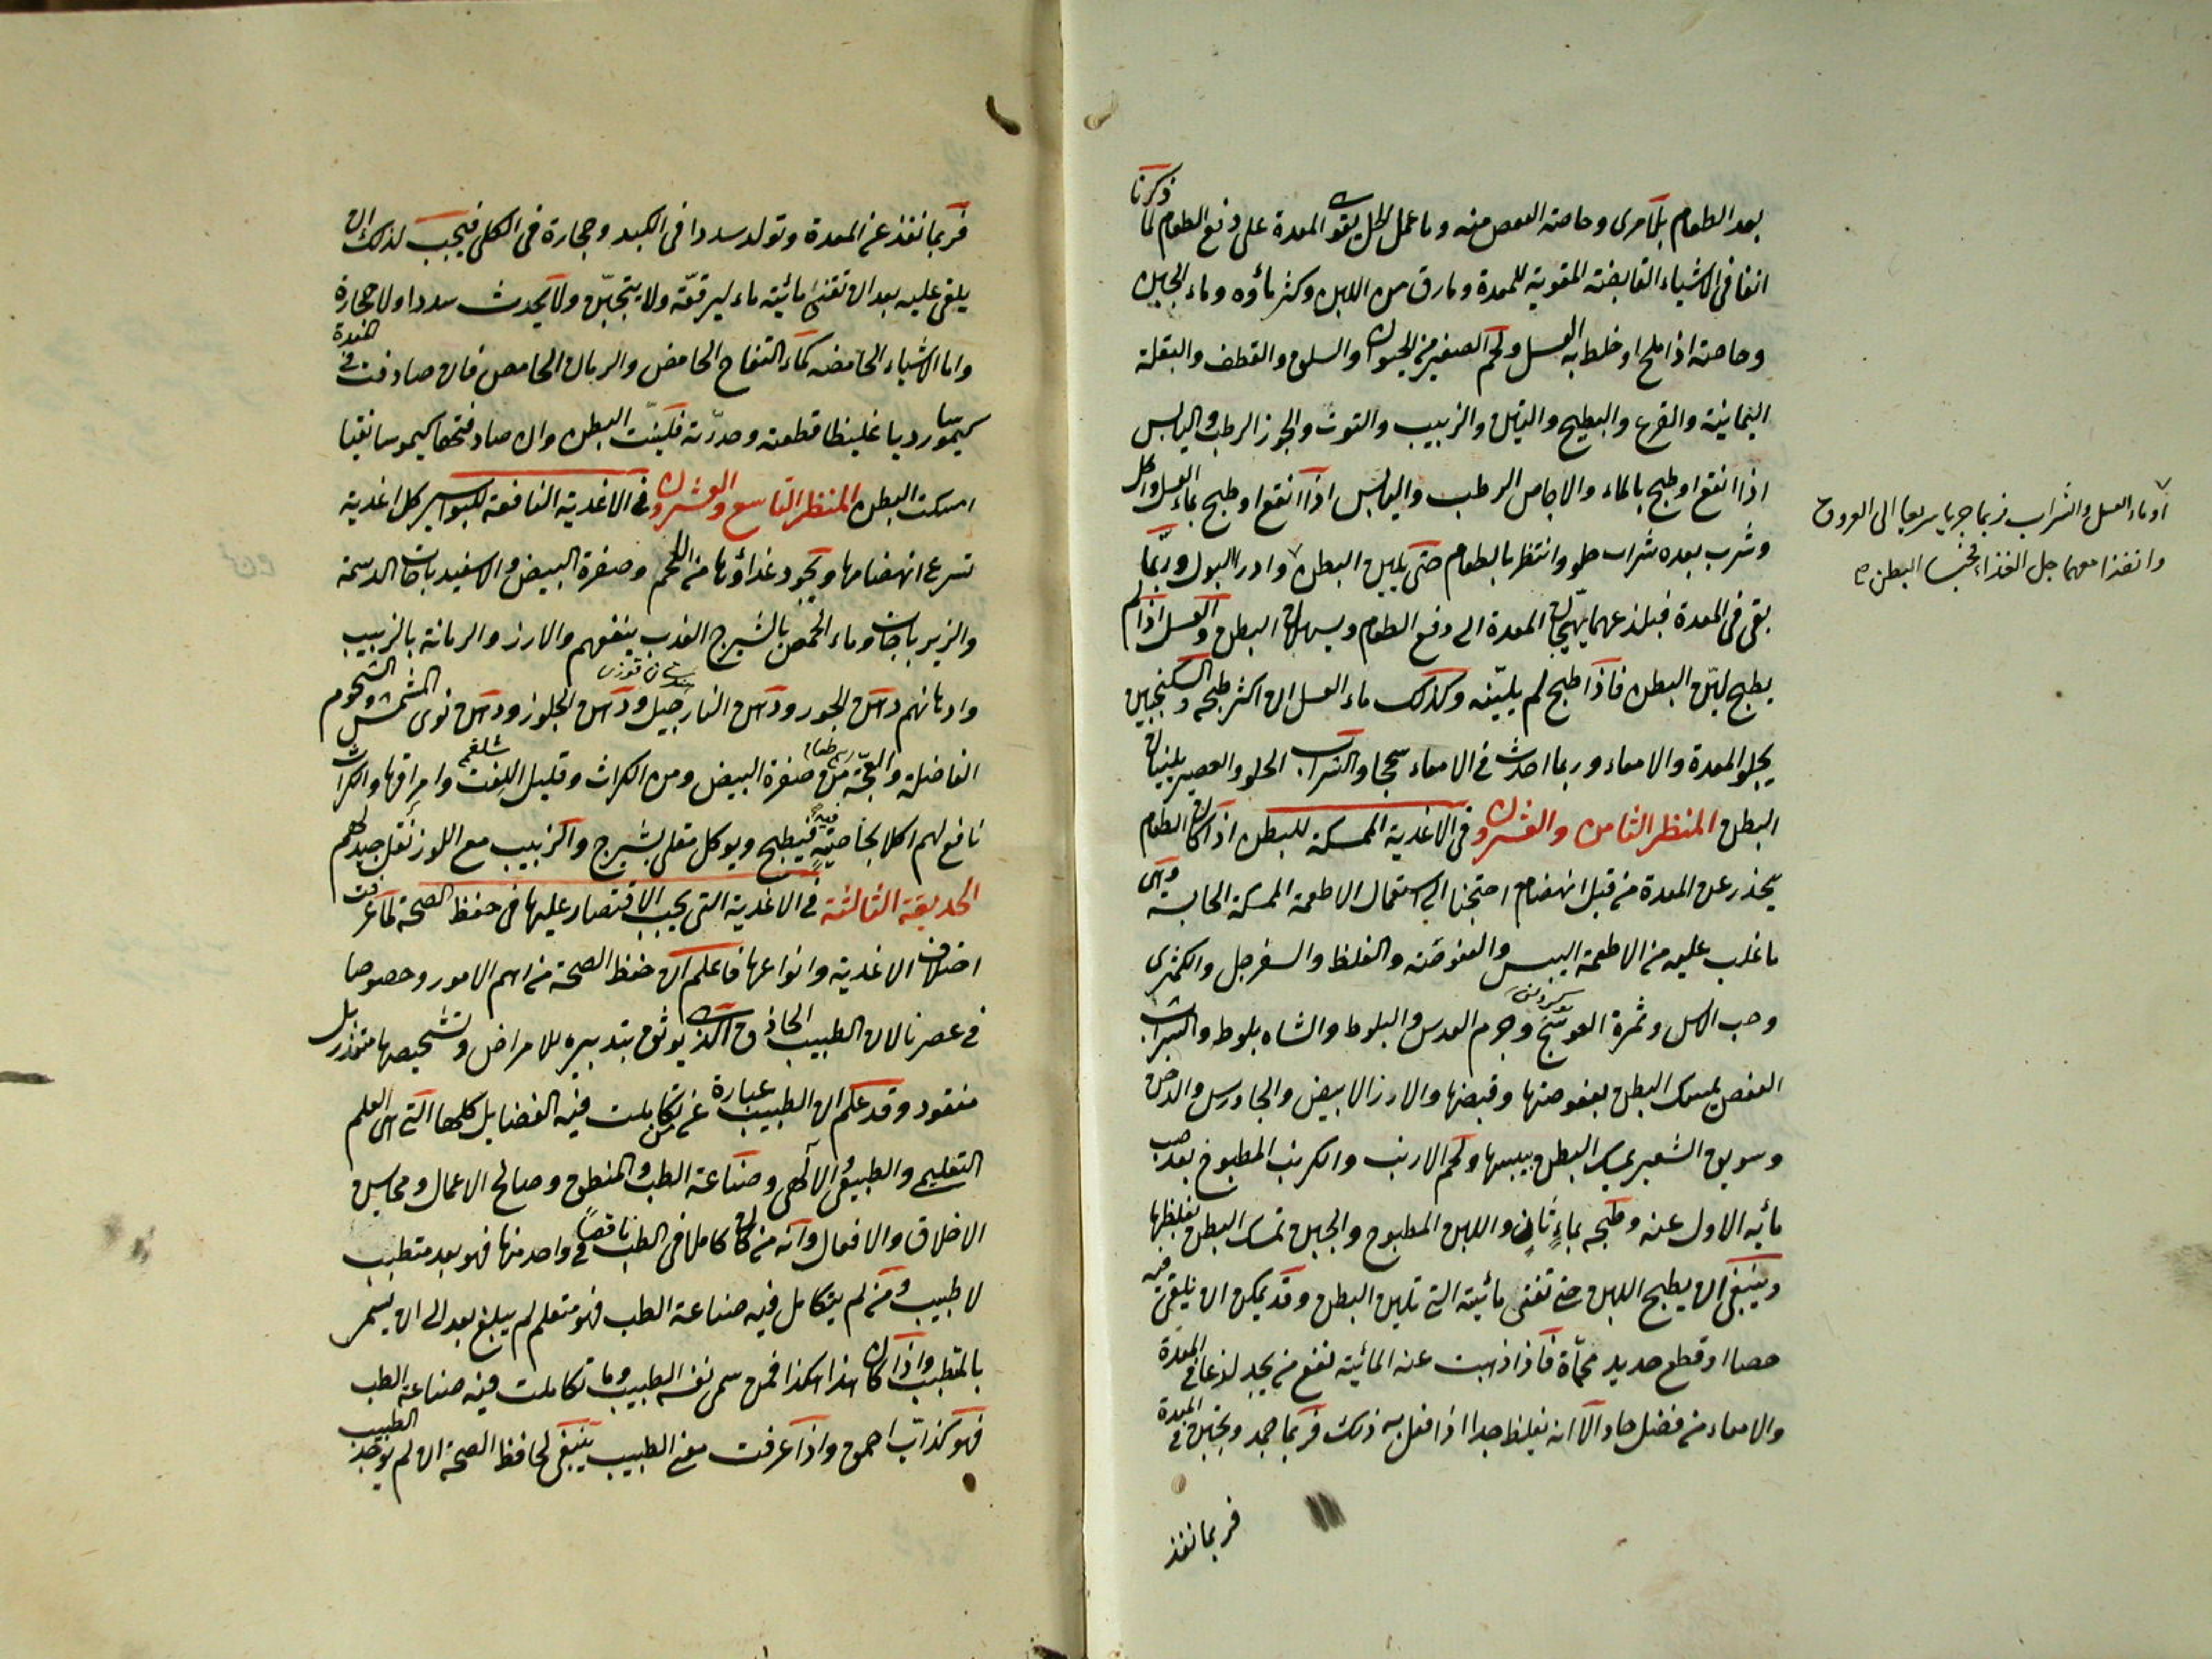 بعد الطعام بالمرى وخاصته العفص منه وما عمل بالخل يقوى المعدة على دفع الطعام لما ذكرنا
انفا فى الاشياء القابضة المقوية للمعدة ومارق من اللبن وكثر ماؤه وماء الجبن
وخاصته اذا ملح او خلط به العسل ولحم الصغير من الحيوان والسلق والقطف والبقلة
اليمانية والقرع والبطيخ والتين والزبيب والتوت والجوز الرطب واليابس
اذا انقع او طبخ بالماء والاجاص الرطب واليابس اذا انقع او طبخ بماء العسل واكل
وشرب بعده شراب حلو وانتظر بالطعام حتى يلين البطن وادر البول وربما
بقى فى المعدة فبلذعهما يهيجان المعدة الى دفع الطعام ويسهلان البطن والعسل اذا لم
يطبخ ليّن البطن فاذا طبخ لم يليّنه وكذلك ماء العسل ان اكثر طبخه والسكنجبين
يجلو المعدة والامعاء وربما احدث فى الامعاء سحجا والشراب الحلو والعصير يلينان
البطن المنظر الثامن والعشرون فى الاغذية الممسكة للبطن اذا كان الطعام
ينحدر عن المعدة من قبل انهضام احتجنا الى استعمال الاطعمة الممسكة الحابسة وهى
ما غلب عليه من الاطعمة اليبس والعفوصة والغلظ والسفرجل والكمثرى
وحب الآس وثمرة العوسج وجرم العدس والبلوط والشاه بلوط والشراب
العفص يمسك البطن بعفوصتها وقبضها والارز الابيض والجاورس والدخن
وسويق الشعير يمسك البطن بيبسها ولحم الارنب والكرنب المطبوخ بعد صب
مائه الاول عنه وطبخه بماءٍ ثانٍ واللبن المطبوخ والجبن تمسك البطن بغلظها
وينبغى ان يطبخ اللبن حتى تفنى مائيته التى تلين البطن وقد يمكن ان يلقى فيه
حصا او قطع حديد محمّاة فاذا ذهبت عنه المائية نفع من يجد لذعا فى المعدة
والامعاء من فضل حاد الا انه يغلظ جدا اذا فعل به ذلك فربما جمد وتجبن فى المعدة
فربما نفذ
او ماء العسل والشراب فربما جريا سريعا الى العروق
وانفذا معهما جل الغذاء فحبسا البطن صح
فربما نفذ عن المعدة وتولد سددا فى الكبد وحجارة فى الكلى فيجب لذلك ان
يلقى عليه بعد ان تفنى مائيته ماء ليرققه ولا يتجبّن ولا يحدث سددا ولا حجارة
واما الاشياء الحامضه كماء التفاح الحامض والرمان الحامض فان صادفت فى المعدة
كيموسا رديا غليظا قطعته وحدرته فليّنت البطن وان صادفتها كيموسا نقيا
امسكت البطن المنظر التاسع والعشرون فى الاغذية النافعة للبواسير كل اغذية
تسرع انهضامها ويجود غذاؤها من اللحم وصفرة البيض والاسفيدباجات الدسمة
والزيرباجات وماء الحمص بالشيرج العذب ينفعهم والارز والرمانة بالزبيب
وادهانهم دهن الجوز ودهن النارجيل ودهن الجلوز ودهن نوى المشمش والشحوم
الفاضلة والعجّة من صفرة البيض ومن الكراث وقليل اللفت وامراقها والكراث
شلغم
نافع لهم اكلا بخاصيّةٍ فيه فيطبخ ويوكل مقلى بشيرج والزبيب مع اللوز نقل جيد لهم
الحديقة الثالثة فى الاغذية التى يجب الاقتصار عليها فى حفظ الصحة لما عرفت
اصناف الاغذية وانواعها فاعلم ان حفظ الصحة من اهم الامور وخصوصا
فى عصرنا لان الطبيب الحاذق الذى يوثق بتدبيره للامراض وتشخيصها متعذر بل
مفقود وقد علم ان الطبيب عبارة عن من تكاملت فيه الفضايل كلها التى هى العلم
التعليمى والطبيعى والآلهى وصناعة الطب والمنطق وصالح الاعمال ومحاسن
الاخلاق والافعال وانه من كان كاملا فى الطب ناقصاً فى واحد منها فهو بعد متطبب
لا طبيب ومن لم يتكامل فيه صناعة الطب فهو متعلم لم يبلغ بعد الى ان يسمى
بالمتطبب واذا كان هذا هكذا فمن سمى نفسه الطبيب وما تكاملت فيه صناعة الطب
فهو كذاب احمق واذا عرفت معنى الطبيب ينبغى لحافظ الصحة ان لم يوجد الطبيب